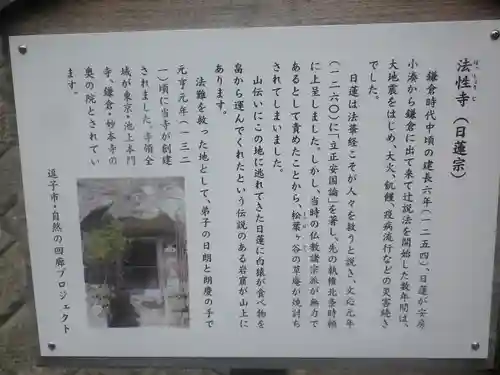 ほっしょうじ
法性寺（日蓮宗）
鎌倉時代中頃の建長六年（一二五四）、日蓮が安房
小湊から鎌倉に出て来て辻説法を開始した数年間は、
大地震をはじめ、大火、飢饉、疫病流行などの災害続き
でした。
日蓮は法華経こそが人々を救うと説き、文応元年
（一二六〇）に「立正安国論」を著し、先の執権北条時頼
に上呈しました。しかし、当時の仏教諸宗派が無力で
あるとして責めたことから、松葉ヶ谷の草庵が焼討ち
されてしまいました。
山伝いにこの地に逃れてきた日蓮に白猿が食べ物を
畠から運んでくれたという伝説のある岩窟が山上に
あります。
法難を救った地として、弟子の日朗と朗慶の手で
元亨元年（一三二
一）頃に当寺が創建
されました。寺領全
域が東京・池上本門
寺、鎌倉・妙本寺の
奥の院とされてい
ます。
逗子市・自然の回廊プロジェクト